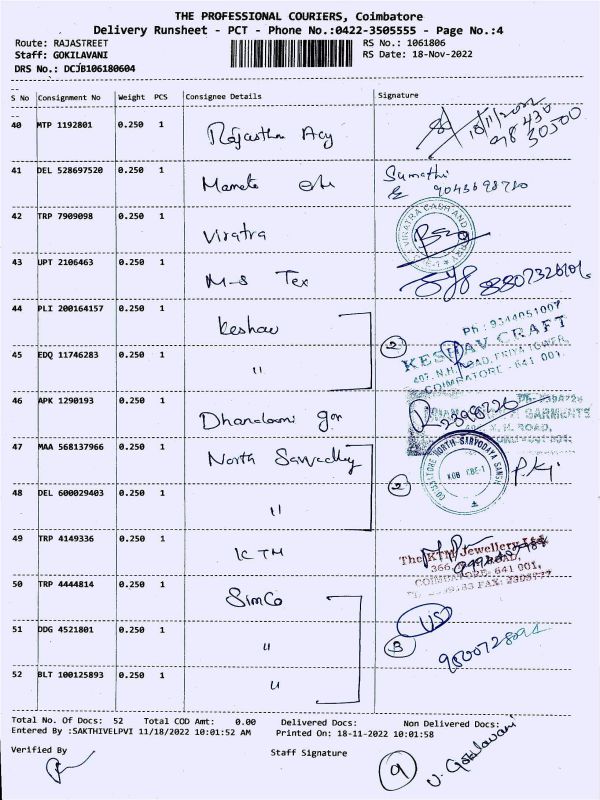 THE PROFESSIONAL COURIERS, Coimbatore
Delivery Runsheet - PCT - Phone No.:0422-3505555 - Page No.:4
Route: RAJASTREET
RS No.: 1061806
Staff: GOKILAVANI
RS Date: 18-Nov-2022
DRS No.: DCJB106180604
S No Consignment No Weight PCS Consignee Details Signature
40 MTP 1192801 0.250 1 Rajasthan Acy 18/11/2022
98430
30500
41 DEL 528697520 0.250 1 Mamata Sumathi
9043698780
42 TRP 7909098 0.250 1 Viratra VIRATRA CASH AND CARRY
43 UPT 2106463 0.250 1 M-S Tex
44 PLI 200164157 0.250 1 Keshav 2 Ph : 9344051007
KESHAV CRAFT
407, N.H. ROAD, PRIYA TOWER,
COIMBATORE - 641 001.
45 EDQ 11746283 0.250 1 "
46 APK 1290193 0.250 1 2398226
GARMENTS
N.H. ROAD,
47 MAA 568137966 0.250 1 North COIMBATORE NORTH SARVODAYA SANGH
48 DEL 600029403 0.250 1 " 2
49 TRP 4149336 0.250 1 KTM The KTM Jewellery Ltd
366, ROAD,
COIMBATORE. 641 001,
50 TRP 4444814 0.250 1 SimCo
51 DDG 4521801 0.250 1 " 3
52 BLT 100125893 0.250 1 "
Total No. Of Docs: 52 Total COD Amt: 0.00 Delivered Docs: Non Delivered Docs:
Entered By :SAKTHIVELPVI 11/18/2022 10:01:52 AM Printed On: 18-11-2022 10:01:58
Verified By Staff Signature 9 V. Gokilavani